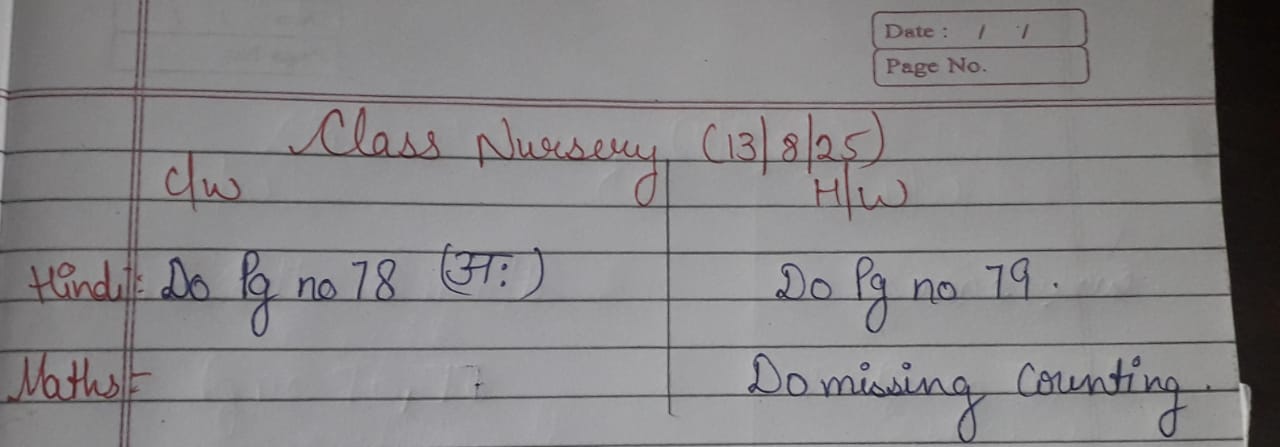 Date : / /
Page No.
Class Nursery (13/8/25)
C/W H/W
Hindi:- Do Pg no 78 (अः) Do Pg no 79.
Maths:- Do missing counting.